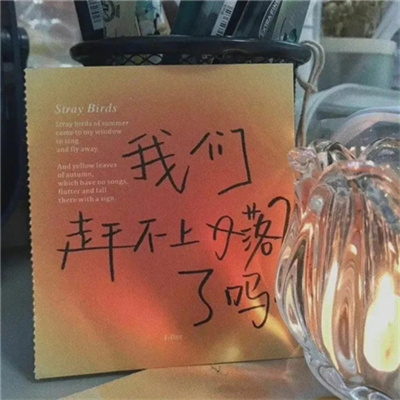 Stray Birds
Stray birds of summer
come to my window
to sing
and fly away.
And yellow leaves
of autumn,
which have no songs,
flutter and fall
there with a sign.
我们
赶不上日落
了吗